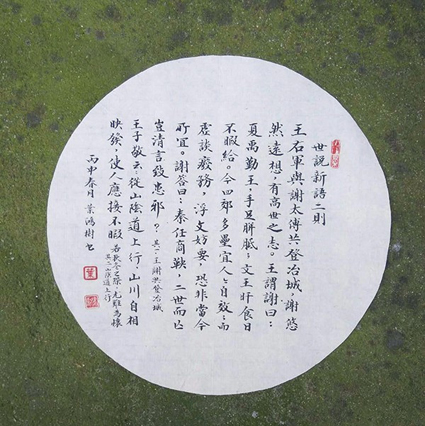 世説新語二則
王右軍與謝太傅共登冶城,謝悠
然遠想,有高世之志。王謂謝曰:
夏禹勤王,手足胼胝;文王旰食,日
不暇給。今四郊多壘,宜人人自效;而
虛談廢務,浮文妨要,恐非當今
所宜。謝答曰:秦任商鞅,二世而亡,
豈清言致患邪?其一:王謝共登冶城
王子敬云:從山陰道上行,山川自相
映發,使人應接不暇,若秋冬之際,尤難為懷
其二:山陰道上行
丙申春月 葉鴻樹書